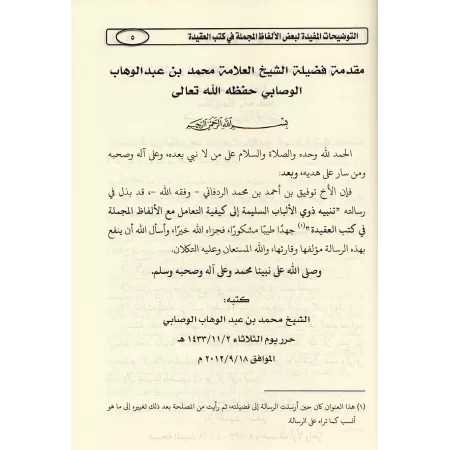 التوضيحات المفيدة لبعض الألفاظ المجملة في كتب العقيدة
٥
مقدمة فضيلة الشيخ العلامة محمد بن عبدالوهاب
الوصابي حفظه الله تعالى
بسم الله الرحمن الرحيم
الحمد لله وحده والصلاة والسلام على من لا نبي بعده، وعلى آله وصحبه
ومن سار على هديه، وبعد:
فإن الأخ توفيق بن أحمد بن محمد الردفاني - وفقه الله -، قد بذل في
رسالته «تنبيه ذوي الألباب السليمة إلى كيفية التعامل مع الألفاظ المجملة
في كتب العقيدة»(١) جهدًا طيبًا مشكورًا، فجزاه الله خيرًا، وأسأل الله أن ينفع
بهذه الرسالة مؤلفها وقارئها، والله المستعان وعليه التكلان.
وصلى الله على نبينا محمد وعلى آله وصحبه وسلم.
كتبه:
الشيخ محمد بن عبد الوهاب الوصابي
حرر يوم الثلاثاء ١٤٣٣/١١/٢ هـ
الموافق ٢٠١٢/٩/١٨ م
(١) هذا العنوان كان حين أرسلت الرسالة إلى فضيلته، ثم رأيت من المصلحة بعد ذلك تغييره إلى ما هو
أنسب كما تراه على الرسالة.